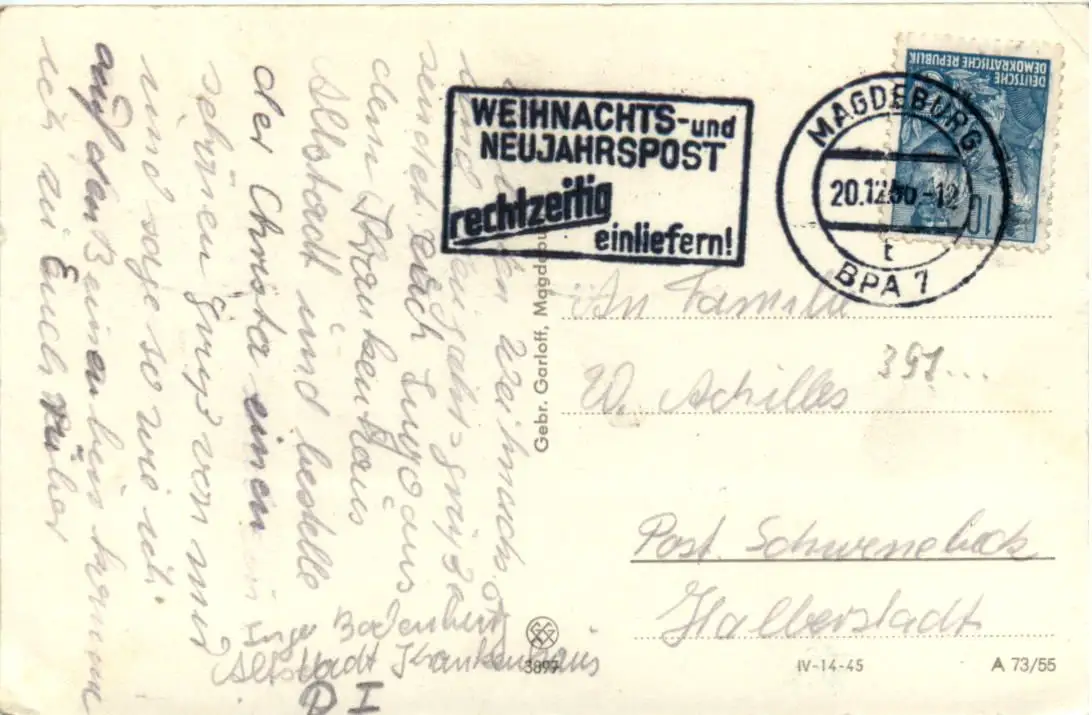 Weihnachts
und Neujahrs=grüsse
sendet Euch Inge aus
dem Krankenhaus
Altstadt und bestelle
der Christa einen
schönen Gruss von mir
und sage so wie ich
auf den Beinen bin komm
ich zu Euch rüber
Inge Bodenburg
Altstadt Krankenhaus
D I
WEIHNACHTS-und
NEUJAHRSPOST
rechtzeitig
einliefern!
MAGDEBURG
20.12.60-12
t
BPA 1
DEUTSCHE
DEMOKRATISCHE REPUBLIK
10
An Familie
W. Achilles
391...
Post Schwanebeck
Halberstadt
Gebr. Garloff, Magdebu
3897
IV-14-45
A 73/55